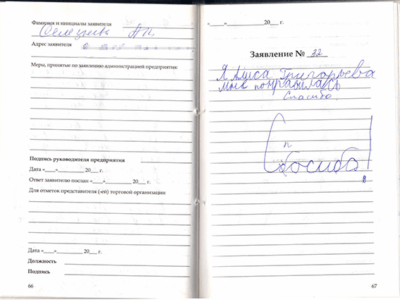 Фамилия и инициалы заявителя
Адрес заявителя
Меры, принятые по заявлению администрацией предприятия:
Подпись руководителя предприятия
Дата «___»________ 20___ г.
Ответ заявителю послан «___»________ 20___ г.
Для отметок представителя (ей) торговой организации
Дата «___»________ 20___ г.
Должность
Подпись
66
«___»________ 20___ г.
Заявление № 32
Я Алиса Григорьева
Мне понравилось
Спасибо
Спасибо!
67